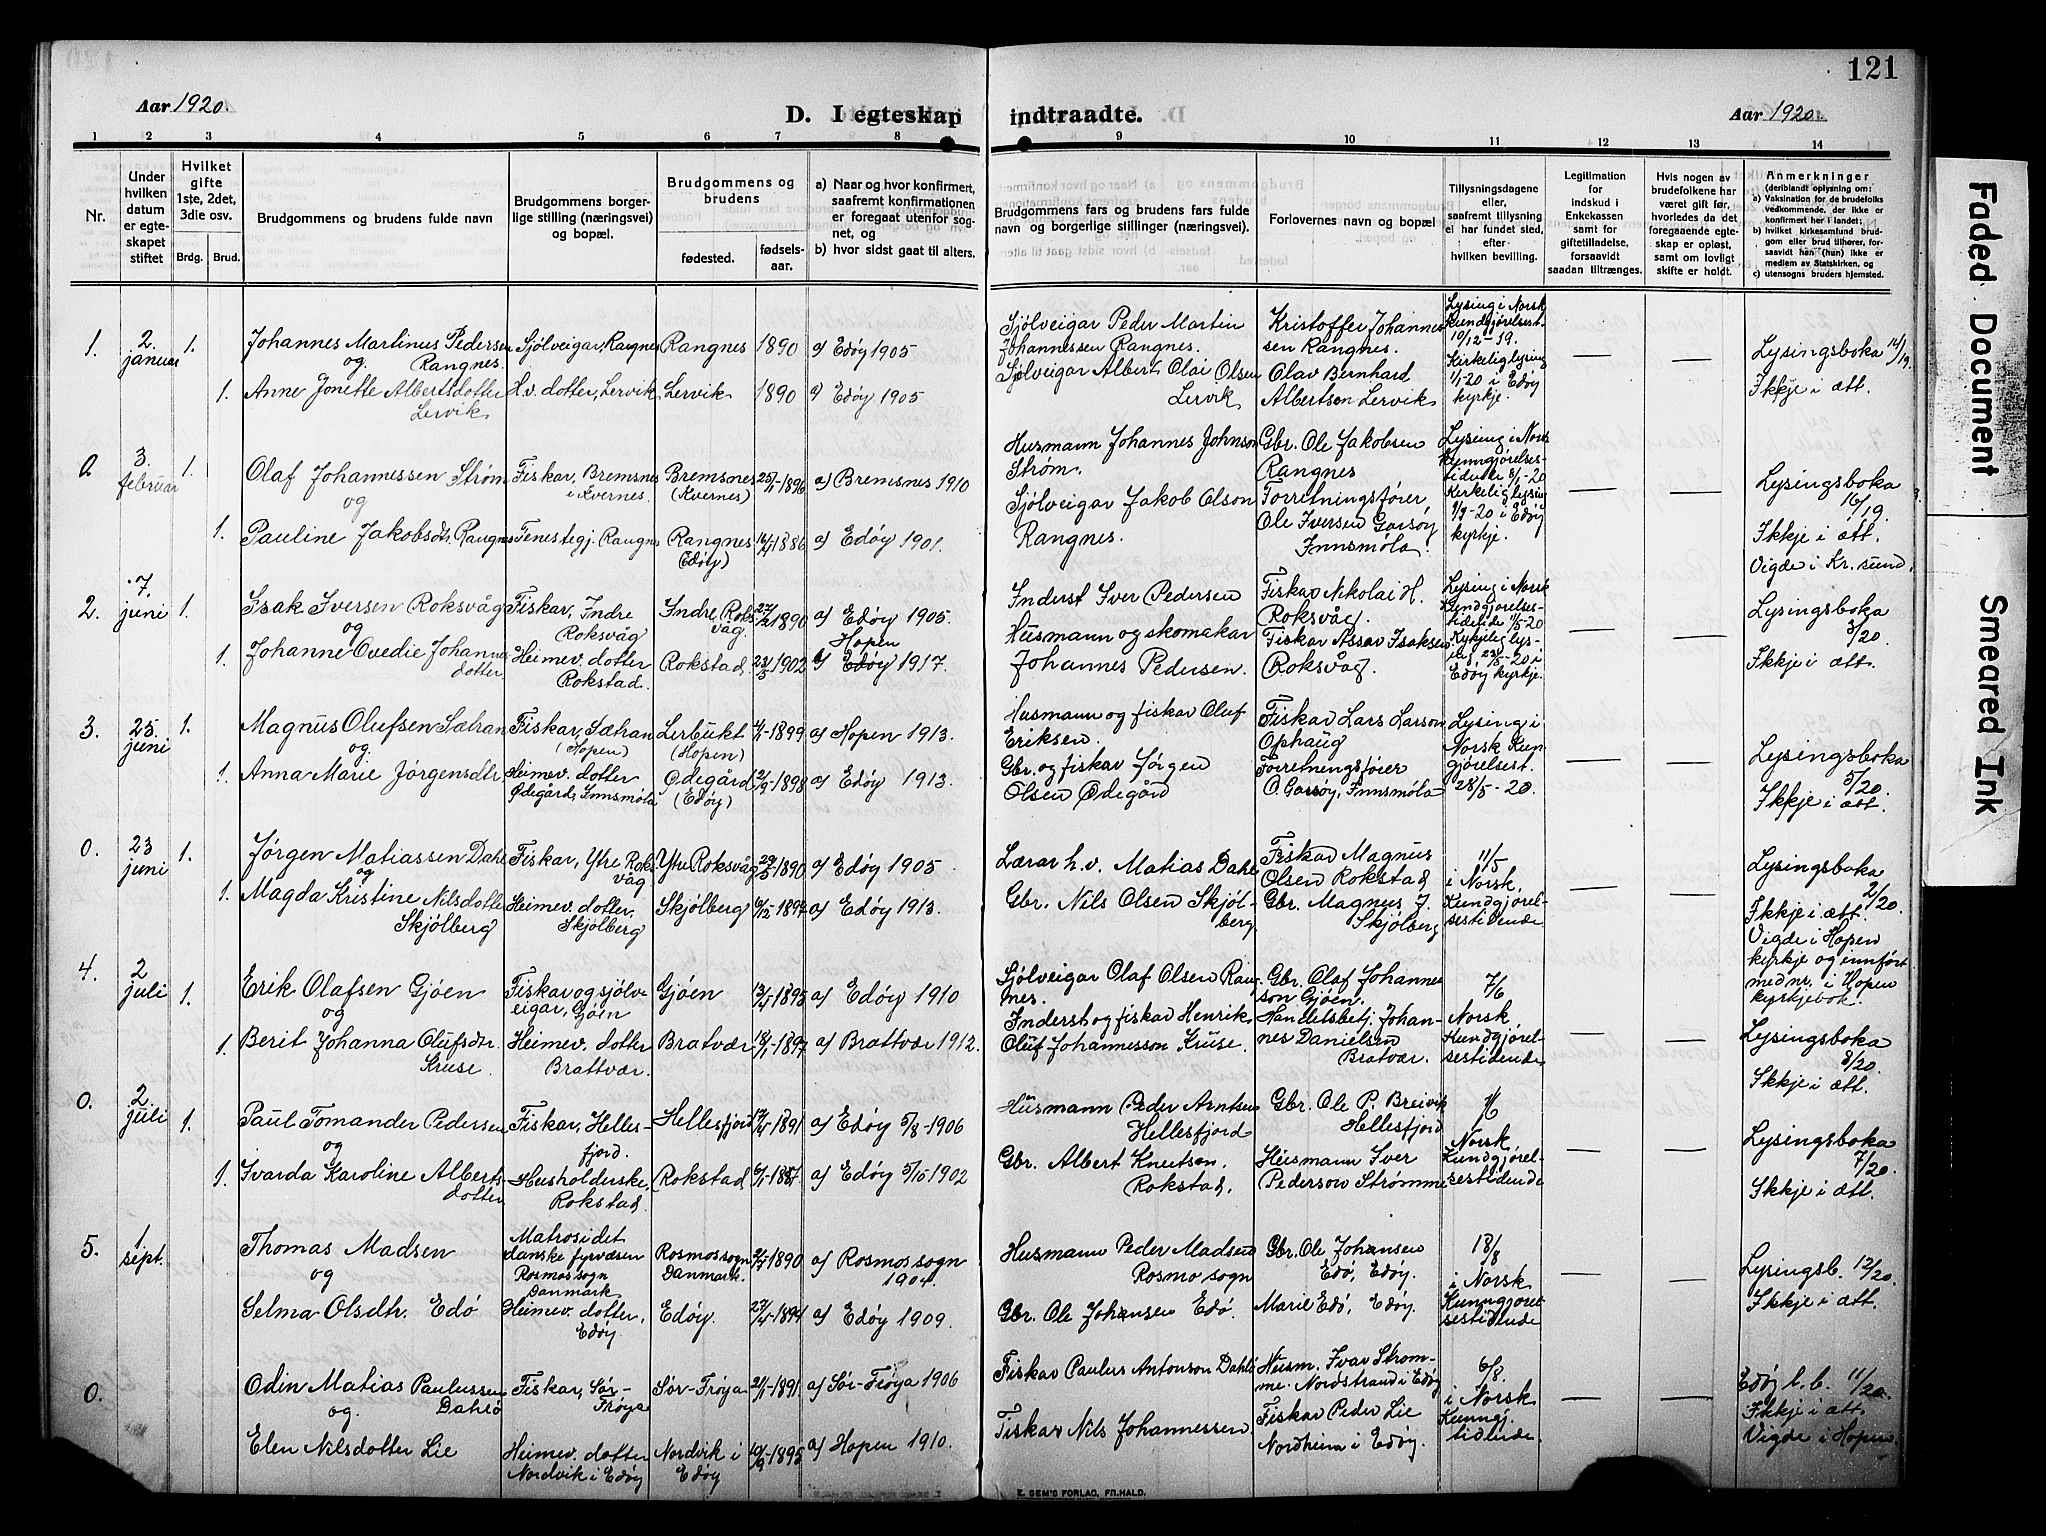 121
Aar 1920.
D. I egteskap indtraadte.
Aar 1920.
1 2 3 4 5 6 7 8 9 10 11 12 13 14
Nr.
Under hvilken datum er egteskapet stiftet
Hvilket gifte 1ste, 2det, 3die osv.
Brdg. Brud.
Brudgommens og brudens fulde navn
Brudgommens borgerlige stilling (næringsvei) og bopæl.
Brudgommens og brudens
fødested.
fødselsaar.
a) Naar og hvor konfirmert, saafremt konfirmationen er foregaat utenfor sognet, og
b) hvor sidst gaat til alters.
Brudgommens fars og brudens fars fulde navn og borgerlige stillinger (næringsvei).
Forlovernes navn og bopæl
Tillysningsdagene eller, saafremt tillysning ei har fundet sted, efter hvilken bevilling.
Legitimation for indskud i Enkekassen samt for giftetilladelse, forsaavidt saadan tiltrænges.
Hvis nogen av brudefolkene har været gift før, hvorledes da det foregaaende egteskap er opløst, samt om lovligt skifte er holdt.
Anmerkninger
(deriblandt oplysning om:
a) Vaksination for de brudefolks vedkommende, der ikke er konfirmert her i landet;
b) hvilket kirkesamfund brudgom eller brud tilhører, forsaavidt han (hun) ikke er medlem av Statskirken, og
c) utensogns bruders hjemsted.
1. 2. januar 1.
Johannes Martinus Pedersen Rangnes.
og
Sjølveigar, Rangnes
Rangnes
1890
a) Edøy 1905
Sjølveigar Peder Martin Johannessen Rangnes.
Kristoffer Johannessen Rangnes.
Lysing i Norsk Kundgjørelsest. 10/12-19. Kirkelig lysing 1/1-20 i Edøy kyrkje.
— —
Lysingsboka 14/19.
Ikkje i ætt.
1. Anne Jonette Albertsdotter Lervik
H.v. dotter, Lervik
Lervik
1890
a) Edøy 1905
Sjølveigar Albert Olai Olsen Lervik
Olav Bernhard Albertsen Lervik
0. 3 februar 1.
Olaf Johannessen Strøm
og
Fiskar, Bremsnes i Kvernes.
Bremsnes (Kvernes)
25/1-1896
a) Bremsnes 1910
Husmann Johannes Johnson Strøm.
Gbr. Ole Jakobsen Rangnes
Lysing i Norsk Kunngjørelsestidende 8/1-20 Kirkelig lysing i Edøy kyrkje.
— —
Lysingsboka 16/19.
Ikkje i ætt.
Vigde i Kr. sund.
1. Pauline Jakobsdt. Rangnes
Tenestegj. Rangnes
Rangnes (Edøy)
16/4-1886
a) Edøy 1901.
Sjølveigar Jakob Olson Rangnes.
Forretningsfører Ole Iversen Garsøy Innsmøla.
2. 7. juni 1.
Isak Iversen Roksvåg
og
Fiskar, Indre Roksvåg
Indre Roksvåg
1890
a) Edøy 1905.
Inderst Iver Pedersen
Fiskar Nikolai H. Roksvåg.
Lysing i Norsk Kundgjørelsestidende 11/5-20 Kyrkjeleg lysing 23/5-20 i Edøy kyrkje.
— —
Lysingsboka 3/20.
Ikkje i ætt.
1. Johanne Ovedie Johannesdotter
Heimev. dotter Rokstad.
Rokstad
23/5 1902
Hopen
a) Edøy 1917.
Husmann og skomakar Johannes Pedersen.
Fiskar Assar Isaksen Roksvåg.
3. 25. juni 1.
Magnus Olufsen Sætran
og
Fiskar, Sætran (Hopen)
Lerbukt (Hopen)
1899
a) Hopen 1913.
Husmann og fiskar Oluf Eriksen.
Fiskar Lars Larson Ophaug
Lysing i Norsk Kungjørelsest. 28/5-20.
Lysingsboka 5/20.
Ikkje i ætt.
1. Anna Marie Jørgensdtr.
Heimev. dotter Ødegård, Innsmøla
Ødegård (Edøy)
2/9-1898
a) Edøy 1913.
Gbr. og fiskar Jørgen Olsen Ødegård
Forretningsfører O. Garsøy, Innsmøla
0. 23 juni 1.
Jørgen Matiassen Dahl
og
Fiskar, Ytre Roksvåg
Ytre Roksvåg
1890
a) Edøy 1905
Lærar h.v. Matias Dahl
Fiskar Magnus Olsen Rokstad
11/5 i Norsk. Kundgjørelsestidende
— —
Lysingsboka 2/20.
Ikkje i ætt.
Vigde i Hopen kyrkje og innført med nr. i Hopen kyrkjebok.
1. Magda Kristine Nilsdotter Skjølberg
Heimev. dotter, Skjølberg
Skjølberg
a) Edøy 1913.
Gbr. Nils Olsen Skjølberg
Gbr. Magnus J. Skjølberg
4. 2 juli 1.
Erik Olafsen Gjøen
og
Fiskar og sjølveigar, Gjøen
Gjøen
1895
a) Edøy 1910
Sjølveigar Olaf Olsen Rangnes.
Gbr. Olaf Johanneson Gjøen.
7/6 Norsk Kundgjørelsestidende
— —
Lysingsboka 8/20.
Ikkje i ætt.
1. Berit Johanna Olufsdtr. Kruse
Heimev. dotter Brattvær.
Bratvær
18/1-1897
a) Brattvær 1912.
Inderst og fiskar Henrik Oluf Johannesson Kruse.
Handelsbetj. Johannes Danielsen Bratvær.
0. 2. juli 1.
Paul Tomander Pedersen
og
Fiskar, Hellesfjord.
Hellesfjord
1891
a) Edøy 5/8-1906
Husmann Peder Arntsen Hellesfjord
Gbr. Ole P. Breivik Hellesfjord
Norsk Kundgjørelsestidende
— —
Lysingsboka 7/20.
Ikkje i ætt.
1. Ivarda Karoline Albertsdotter
Husholderske, Rokstad
Rokstad
a) Edøy 5/10 1902
Gbr. Albert Knutson. Rokstad.
Husmann Iver Pederson Strømme
5. 1 sept.
Thomas Madsen
og
Matros i det danske fyrvæsen Rosmos sogn Danmark
Rosmos sogn Danmark.
1890
a) Rosmos sogn 1904.
Husmann Peder Madsen Rosmo sogn
Gbr. Ole Johansen Edø, Edøy.
18/8 i Norsk Kunngjørelsestidende
— —
Lysingsb. 12/20.
Ikkje i ætt.
Selma Olsdtr. Edø
Heimev. dotter, Edøy
Edøy.
1894
a) Edøy 1909.
Gbr. Ole Johansen Edø.
Marie Edø, Edøy.
0.
Odin Matias Paulussen Dahlø
og.
Fiskar, Sør-Frøya
Sør-Frøya
2/1-1891.
a) Sør-Frøya 1906
Fiskar Paulus Antonson Dahlø
Husm. Ivar Strømme. Nordstrand i Edøy
6/8. i Norsk Kunngj. tidende.
— —
Edøy l.b. 11/20.
Ikkje i ætt.
Vigde i Hopen.
Elen Nilsdotter Lie
Heimev. dotter Nordvik i Edøy
Nordvik i Edøy
a) Hopen 1910.
Fiskar Nils Johannessen
Fiskar Peder Lie Nordheim i Edøy.
E. SEM'S FORLAG, FR.HALD.
Faded Document
Smeared Ink